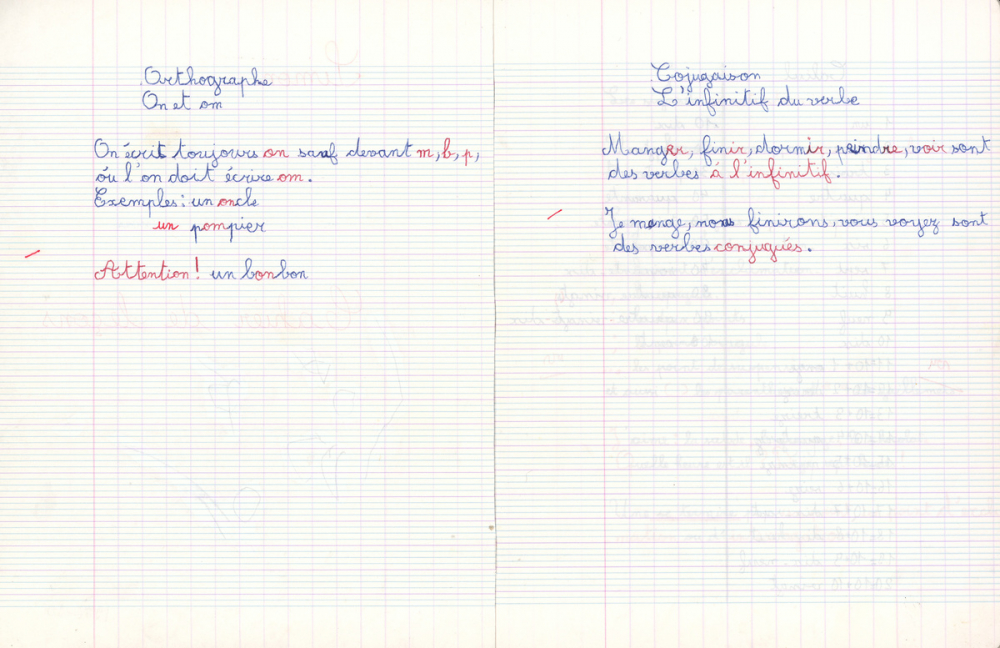 Orthographe
On et om
On écrit toujours on sauf devant m, b, p,
óu l'on doit écrire om.
Exemples : un oncle
un pompier
Attention ! un bonbon
Cojugaison
L'infinitif du verbe
Manger, finir, dormir, peindre, voir sont
des verbes à l'infinitif.
Je mange, nous finirons, vous voyez sont
des verbes conjugués.